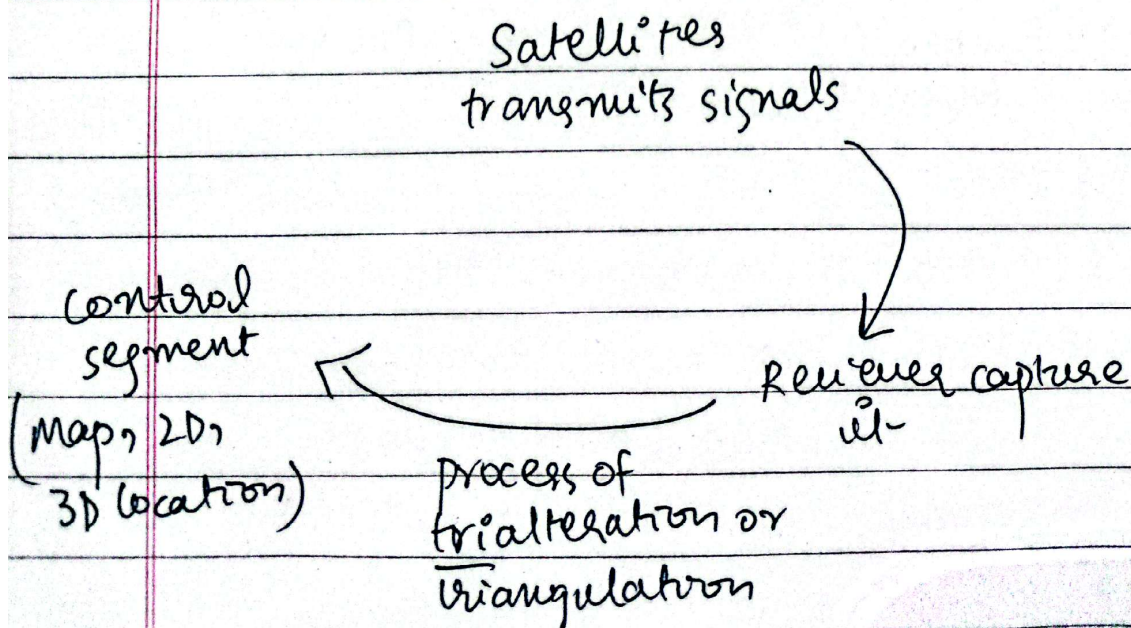 Satellites
transmits signals
Reciever capture
it
process of
trialteration or
triangulation
control
segment
(Map, 2D,
3D location)